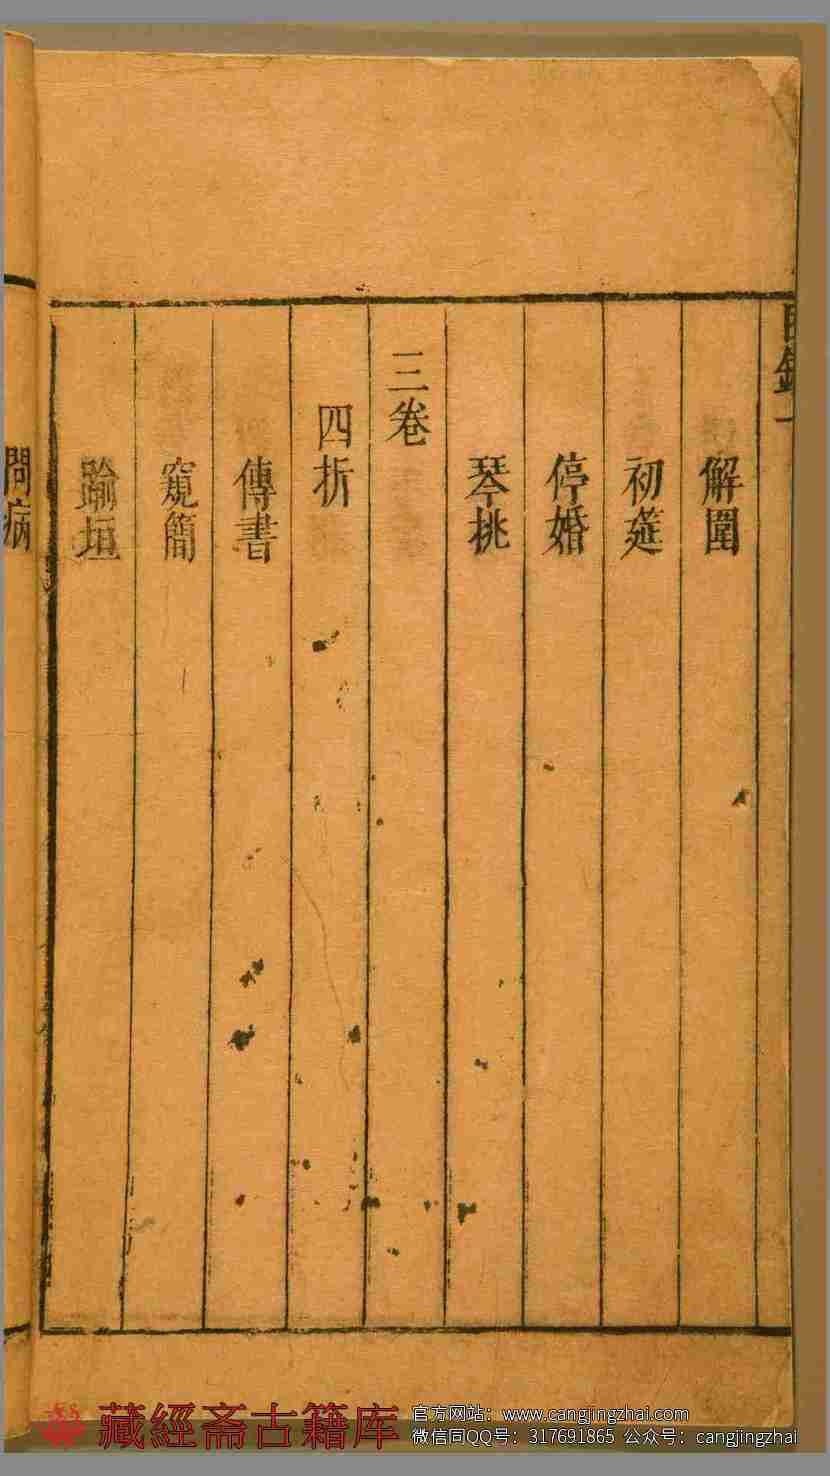 目錄一
解圍
初筵
停婚
琴挑
三卷
四折
傳書
窺簡
踰垣
問病
藏經斋古籍库
官方网站：www.cangjingzhai.com
微信同QQ号：317691865 公众号：cangjingzhai